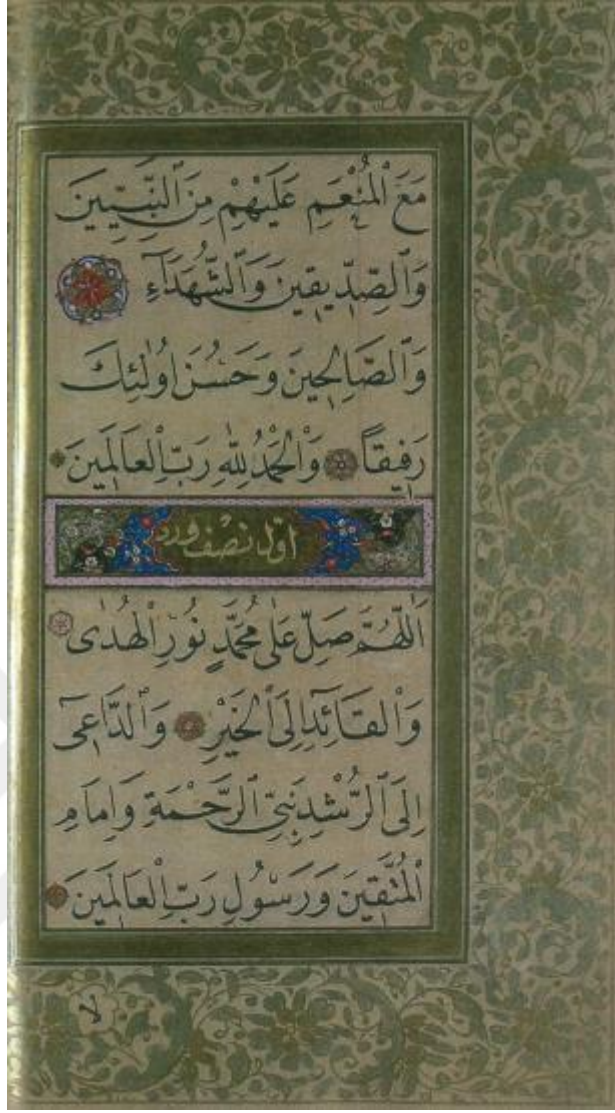 مَعَ الْمُنْعَمِ عَلَيْهِمْ مِنَ النَّبِيِّينَ
وَالصِّدِّيقِينَ وَالشُّهَدَآءِ
وَالصَّالِحِينَ وَحَسُنَ اُولٰئِكَ
رَفِيقًا وَالْحَمْدُ لِلّٰهِ رَبِّ الْعَالَمِينَ
اول نصف ورد
اَللّٰهُمَّ صَلِّ عَلٰى مُحَمَّدٍ نُورِ الْهُدٰى
وَالْقَآئِدِ اِلَى الْخَيْرِ وَالدَّاعِىٓ
اِلَى الرُّشْدِ نَبِىِّ الرَّحْمَةِ وَاِمَامِ
الْمُتَّقِينَ وَرَسُولِ رَبِّ الْعَالَمِينَ